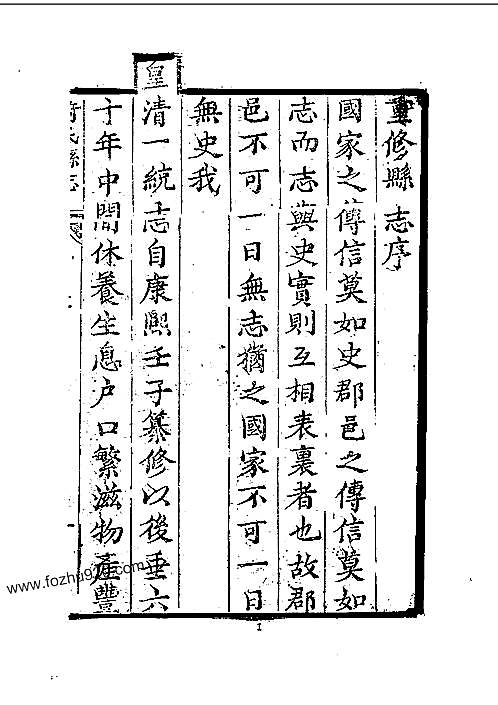 重修縣志序
國家之傳信莫如史郡邑之傳信莫如
志而志與史實則互相表裏者也故郡
邑不可一日無志猶之國家不可一日
無史我
皇清一統志自康熙壬子纂修以後垂六
十年中間休養生息户口繁滋物產豐
氏縣志
1